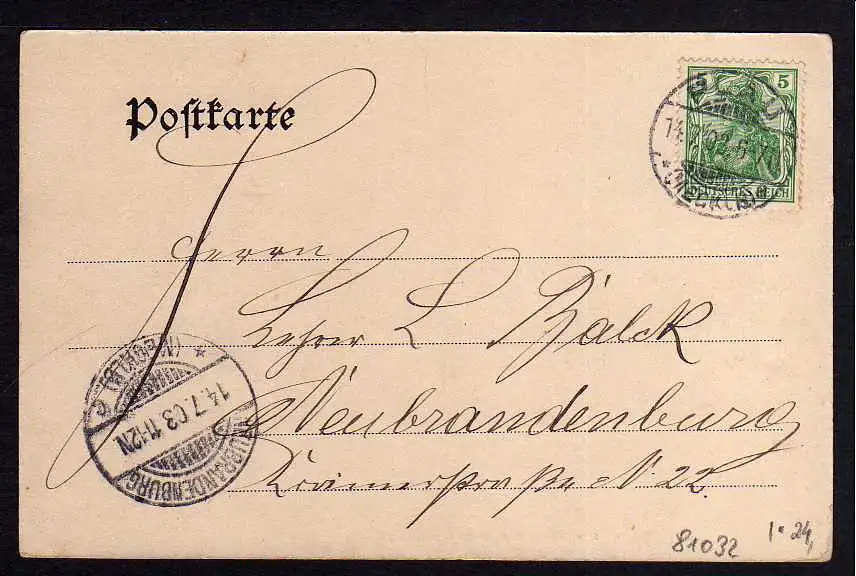 Postkarte
5
DEUTSCHES REICH
14. 03 5-
* (MECKLB)
Herrn
Lehrer L Bälck
Neubrandenburg
Krämerstraße N. 22.
NEUBRANDENBURG
14.7.03 11-12N
* (MECKLB) C
81032
1° 24,